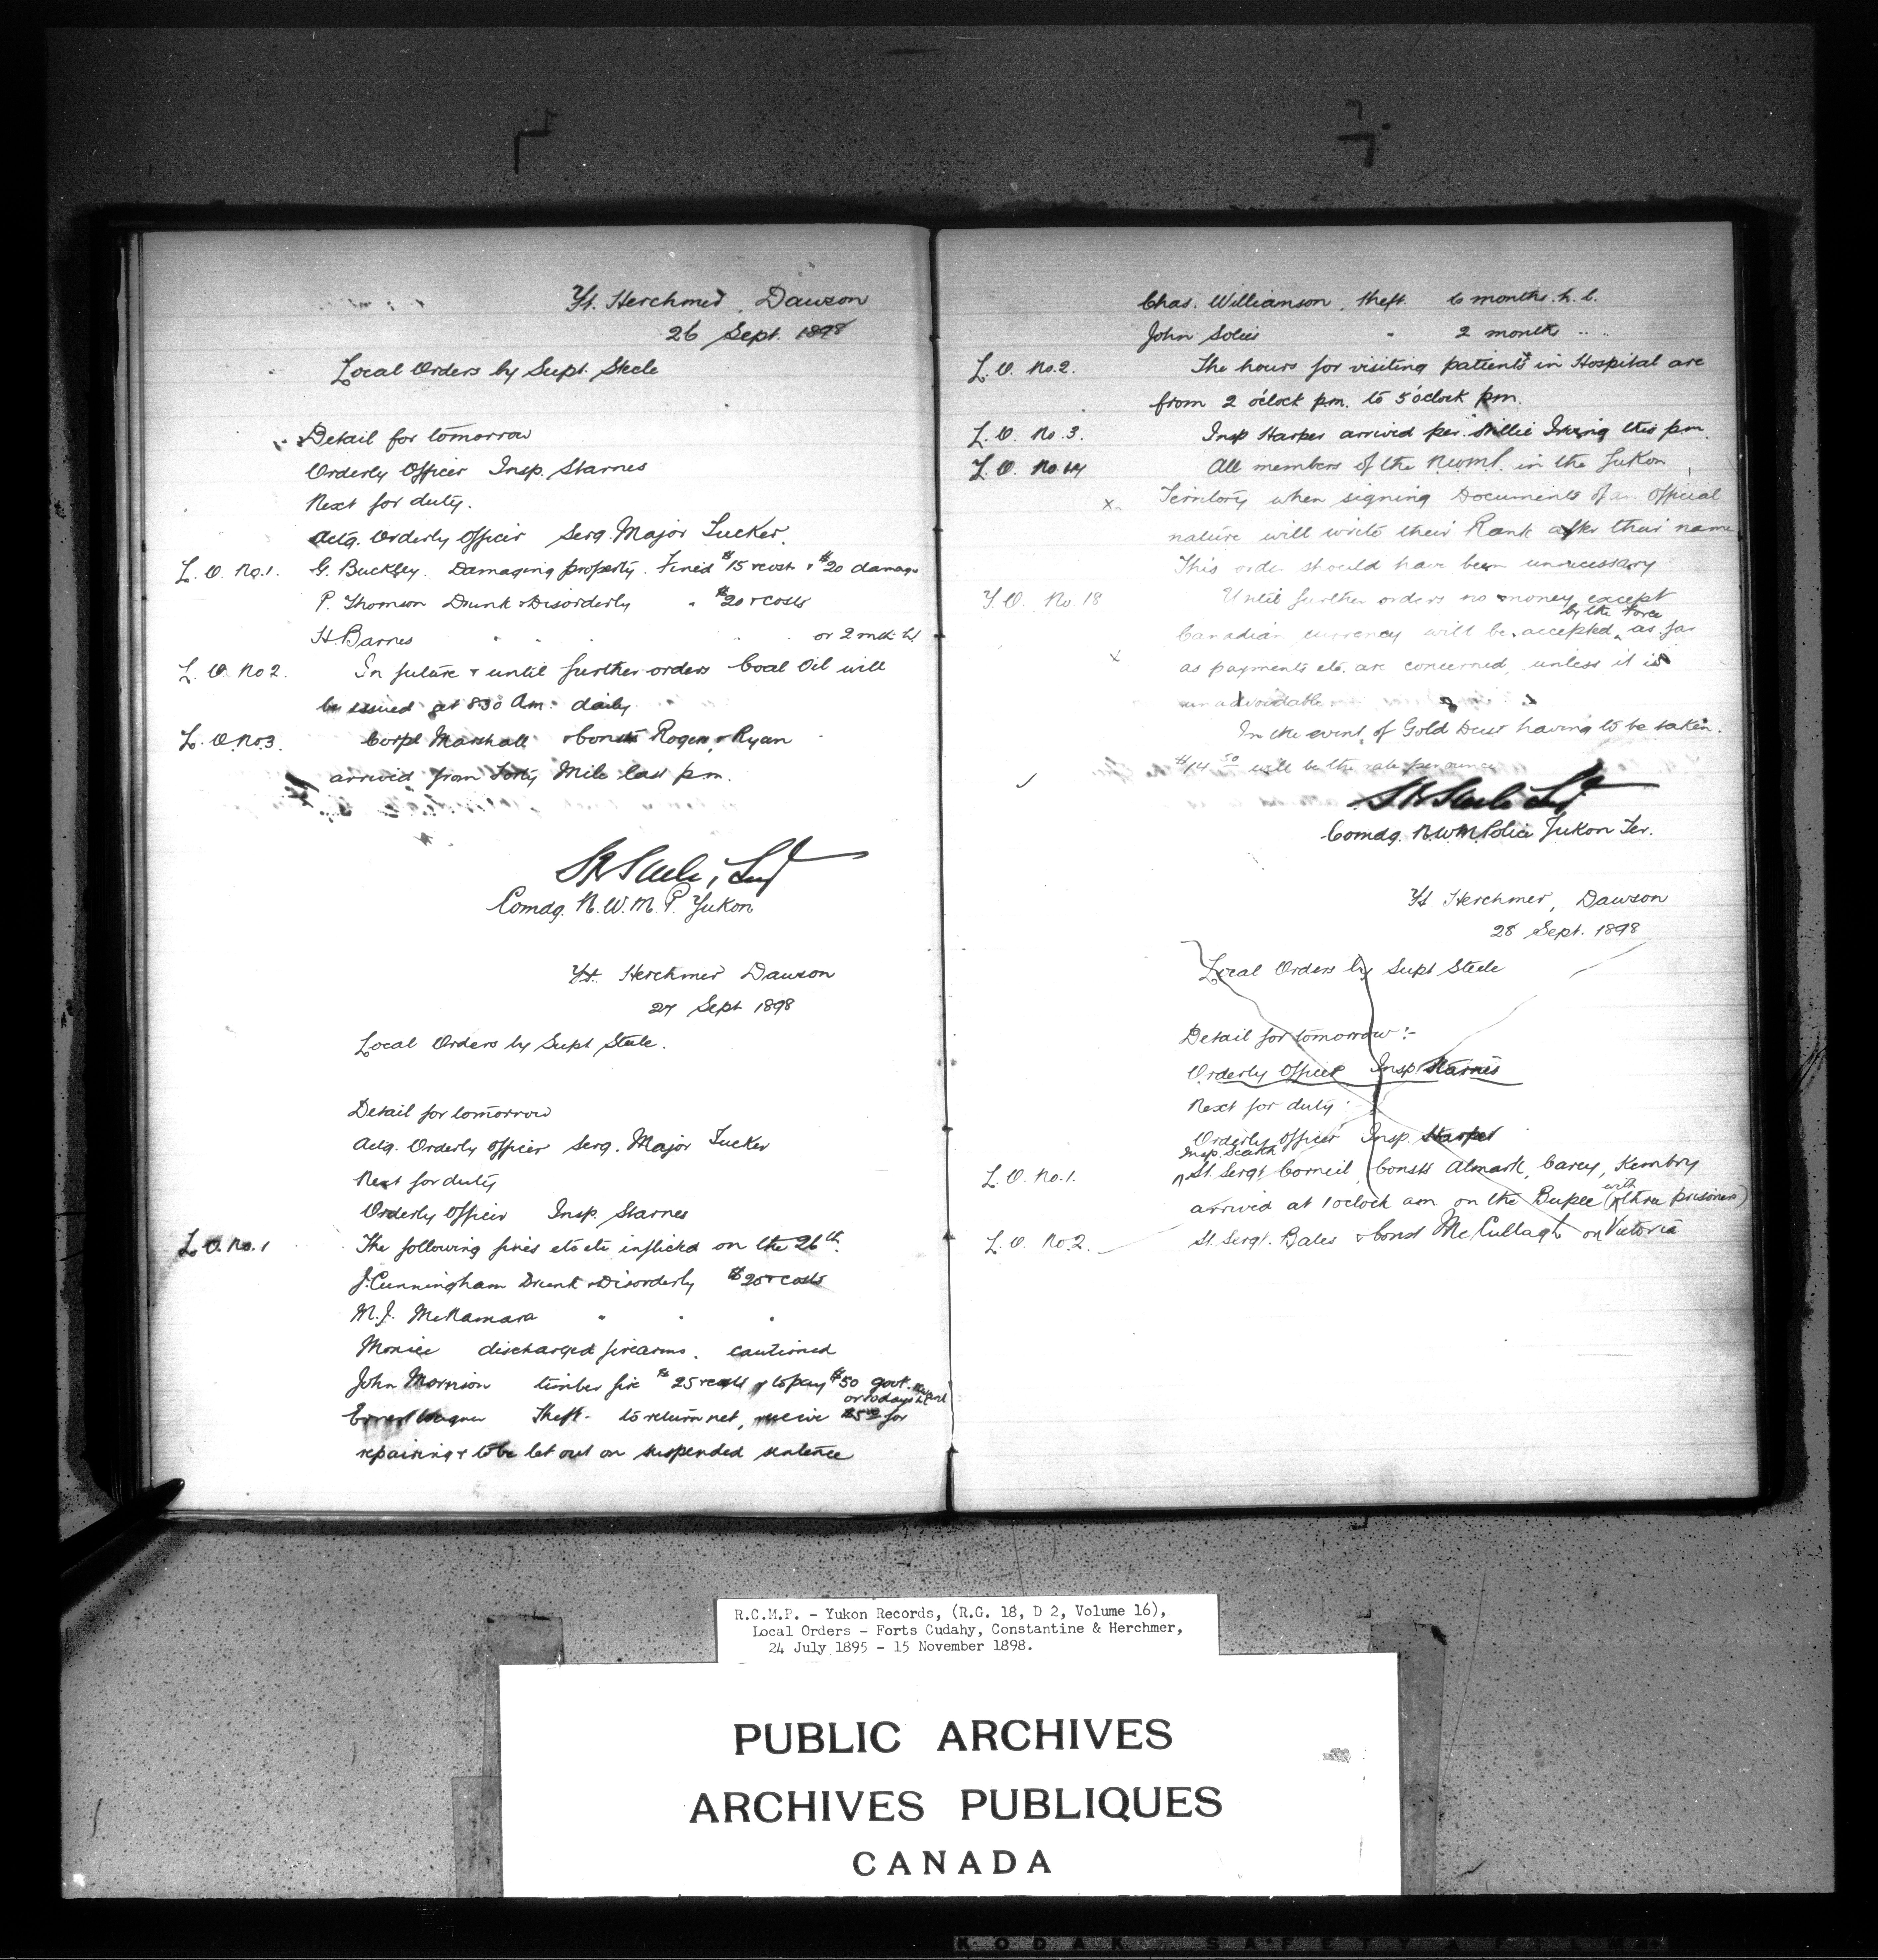 Ft. Herchmer, Dawson
26 Sept. 1898
Local Orders by Supt. Steele
Detail for tomorrow
Orderly Officer Insp. Starnes
Next for duty.
Actg. Orderly Officer Serg. Major Tucker.
L. O. No.1. G. Buckley. Damaging property. Fined $15 & cost & $20 damage
P. Thomson Drunk & Disorderly " $20 & costs
H. Barnes " " " or 2 mth. h.l.
L. O. No 2. In future & until further orders Coal Oil will
be issued at 8.30 Am. daily
L. O. No 3. Corpl Marshall & Consts Rogers, & Ryan
arrived from Forty Mile last p.m.
SB Steele, Supt
Comdg. N.W.M.P. Yukon
Ft. Herchmer Dawson
27 Sept 1898
Local Orders by Supt Steele.
Detail for tomorrow
Actg. Orderly Officer Serg. Major Tucker
Next for duty
Orderly Officer Insp. Starnes
L. O. No. 1 The following fines etc etc inflicted on the 26th.
J. Cunningham Drunk & Disorderly $20 & costs
M. J. McNamara " " "
discharged firearms. cautioned
John Morrison timber fire $25 & costs & to pay $50 govt.
or 60 days h.l.
Theft. to return net, receive $5.00 for
repairing & to be let out on suspended sentence
Chas. Williamson, theft. 6 months. h. l.
John " 2 months " "
L. O. No.2. The hours for visiting patients in Hospital are
from 2 o'clock p.m. to 5 o'clock pm.
L. O. No. 3. Insp Harper arrived per. Willie Irving this pm.
L. O. No. 14 All members of the N.W.M.P. in the Yukon
x Territory when signing Documents of an Official
nature will write their Rank after their name
This order should have been unnecessary
L. O. No. 18 Until further orders no money except
by the Force
Canadian currency will be accepted, as far
x as payments etc. are concerned, unless it is
unadvoidable
In the event of Gold Dust having to be taken.
$14 50 will be the rate per ounce
SB Steele Supt
Comdg. N.W.M. Police Yukon Ter.
Ft Herchmer, Dawson
28 Sept. 1898
Local Orders by Supt Steele
Detail for tomorrow :-
Orderly Officer Insp. Starnes
Next for duty :
Orderly Officer Insp. Harper
Insp. Scarth
L. O. No. 1. St. Sergt Corneil, Consts Almark, Carey, Kembry
arrived at 1 oclock am on the (with three prisoners)
L. O. No. 2. St. Sergt. Bates & Const McCullagh on Victoria
R.C.M.P. - Yukon Records, (R.G. 18, D 2, Volume 16),
Local Orders - Forts Cudahy, Constantine & Herchmer,
24 July 1895 - 15 November 1898.
PUBLIC ARCHIVES
ARCHIVES PUBLIQUES
CANADA
KODAK SAFETY FILM